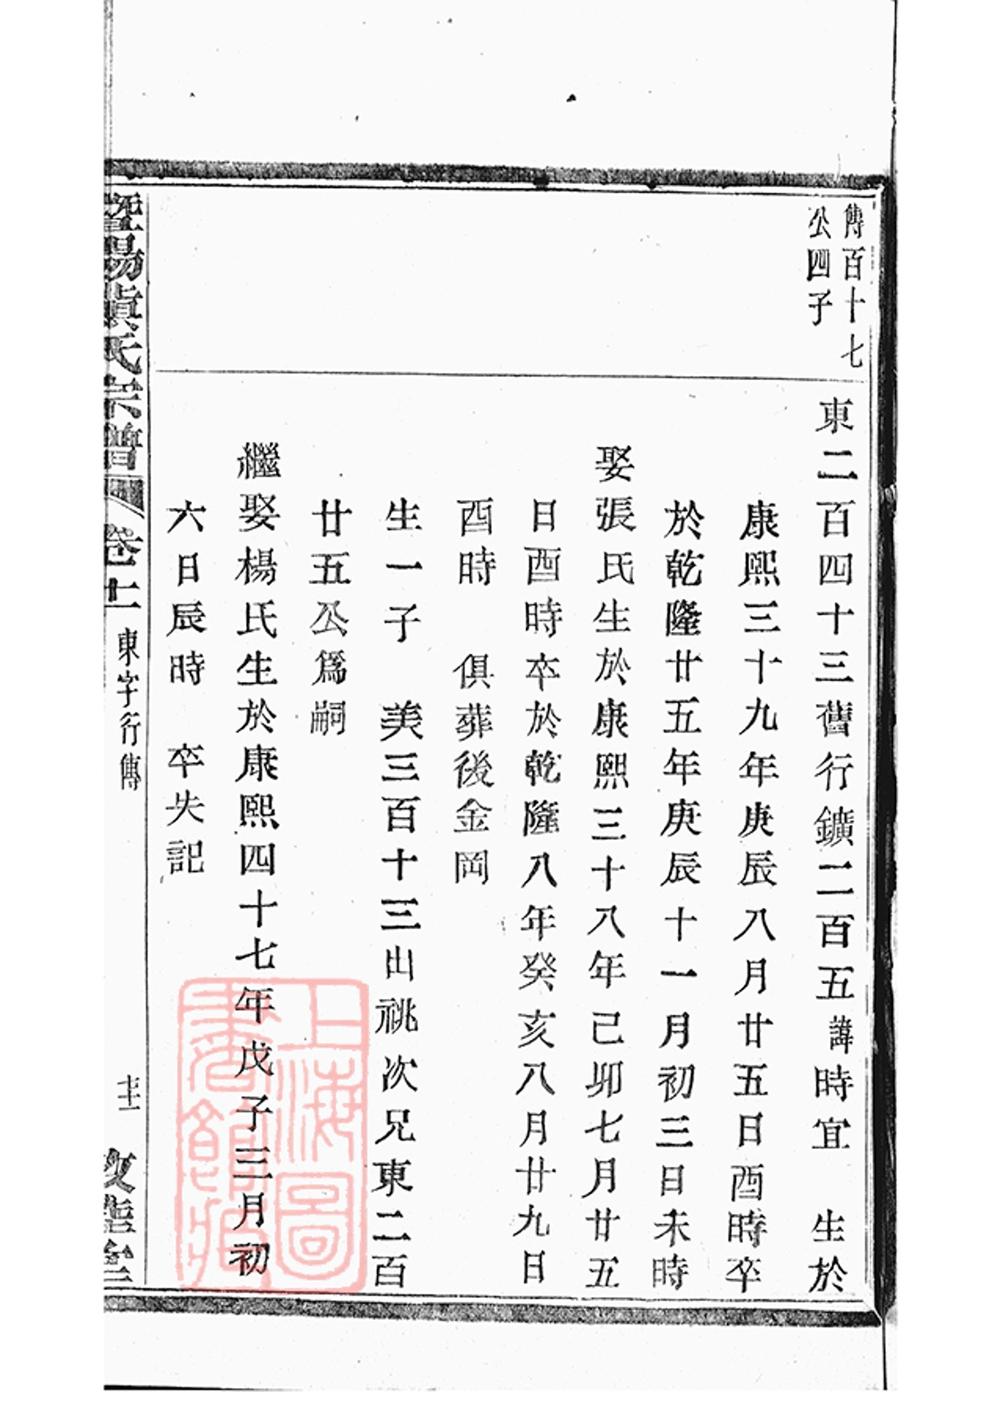 傳百十七
公四子
東二百四十三舊行鑛二百五諱時宜 生於
康熙三十九年庚辰八月廿五日酉時卒
於乾隆廿五年庚辰十一月初三日未時
娶張氏生於康熙三十八年己卯七月廿五
日酉時卒於乾隆八年癸亥八月廿九日
酉時 俱葬後金岡
生一子 美三百十三出祧次兄東二百
廿五公為嗣
繼娶楊氏生於康熙四十七年戊子三月初
六日辰時 卒失記
暨陽 氏宗譜 卷十一 東字行傳
上海圖書館藏